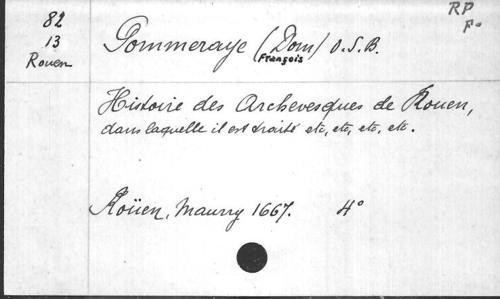 82
13
Rouen
RP
F°
Pommeraye (Dom) O.S.B.
François
Histoire des Archevesques de Rouen,
dans laquelle il est traité etc, etc, etc, etc.
Roüen, Maurry 1667. 4°